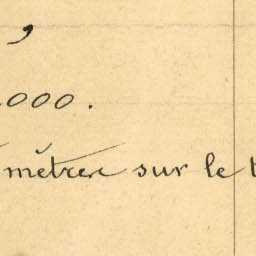 000.
mètres sur le t